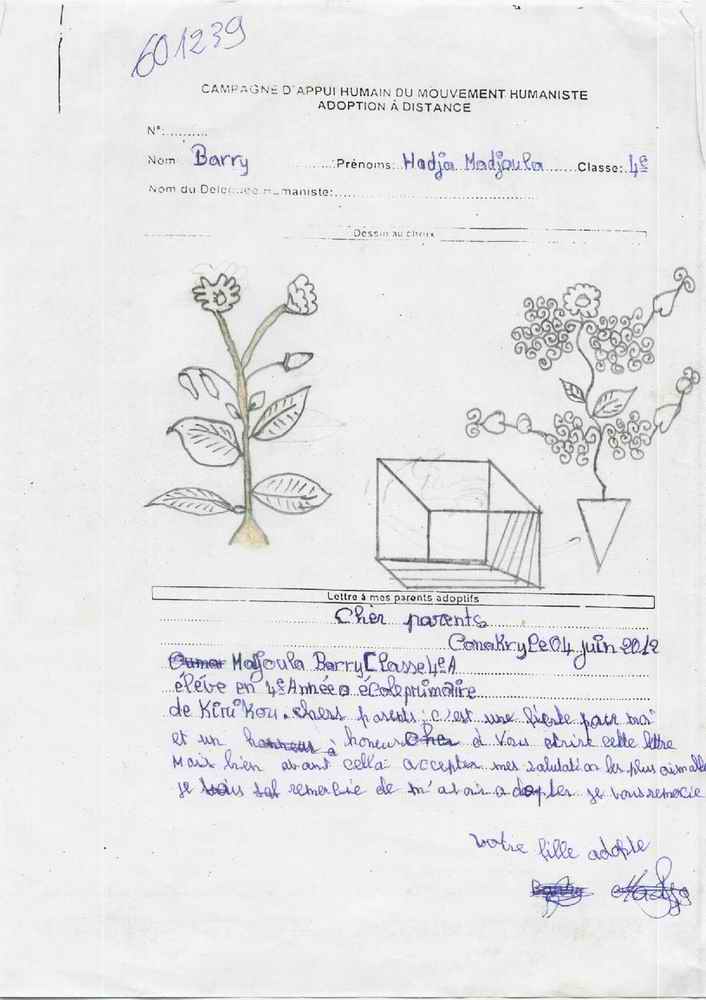 601239
CAMPAGNE D'APPUI HUMAIN DU MOUVEMENT HUMANISTE
ADOPTION À DISTANCE
N°:.........
Nom Barry Prénoms: Hadja Madjoula Classe: 4e
Nom du Délégué Humaniste:
Dessin au choix
Lettre à mes parents adoptifs
Chèr parents
Conakry Le 04 juin 2012
Oumar Madjoula Barry Classe 4e A
éléve en 4e Année a école primaire
de Kirikou. chers parents : c'est une fierte pour moi
et un à honeur cher à vous ecrire cette lettre
Mais bien avant cella accepter mes salutation les plus aimable
je remercie de m'avoir adopter je vous remercie
votre fille adopte
Barry Hadja